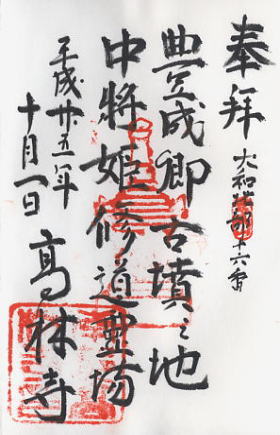 奉拝
大和北部十六番
豊成卿古墳之地
中将姫修道霊場
平成廿五年
十月一日
高林寺